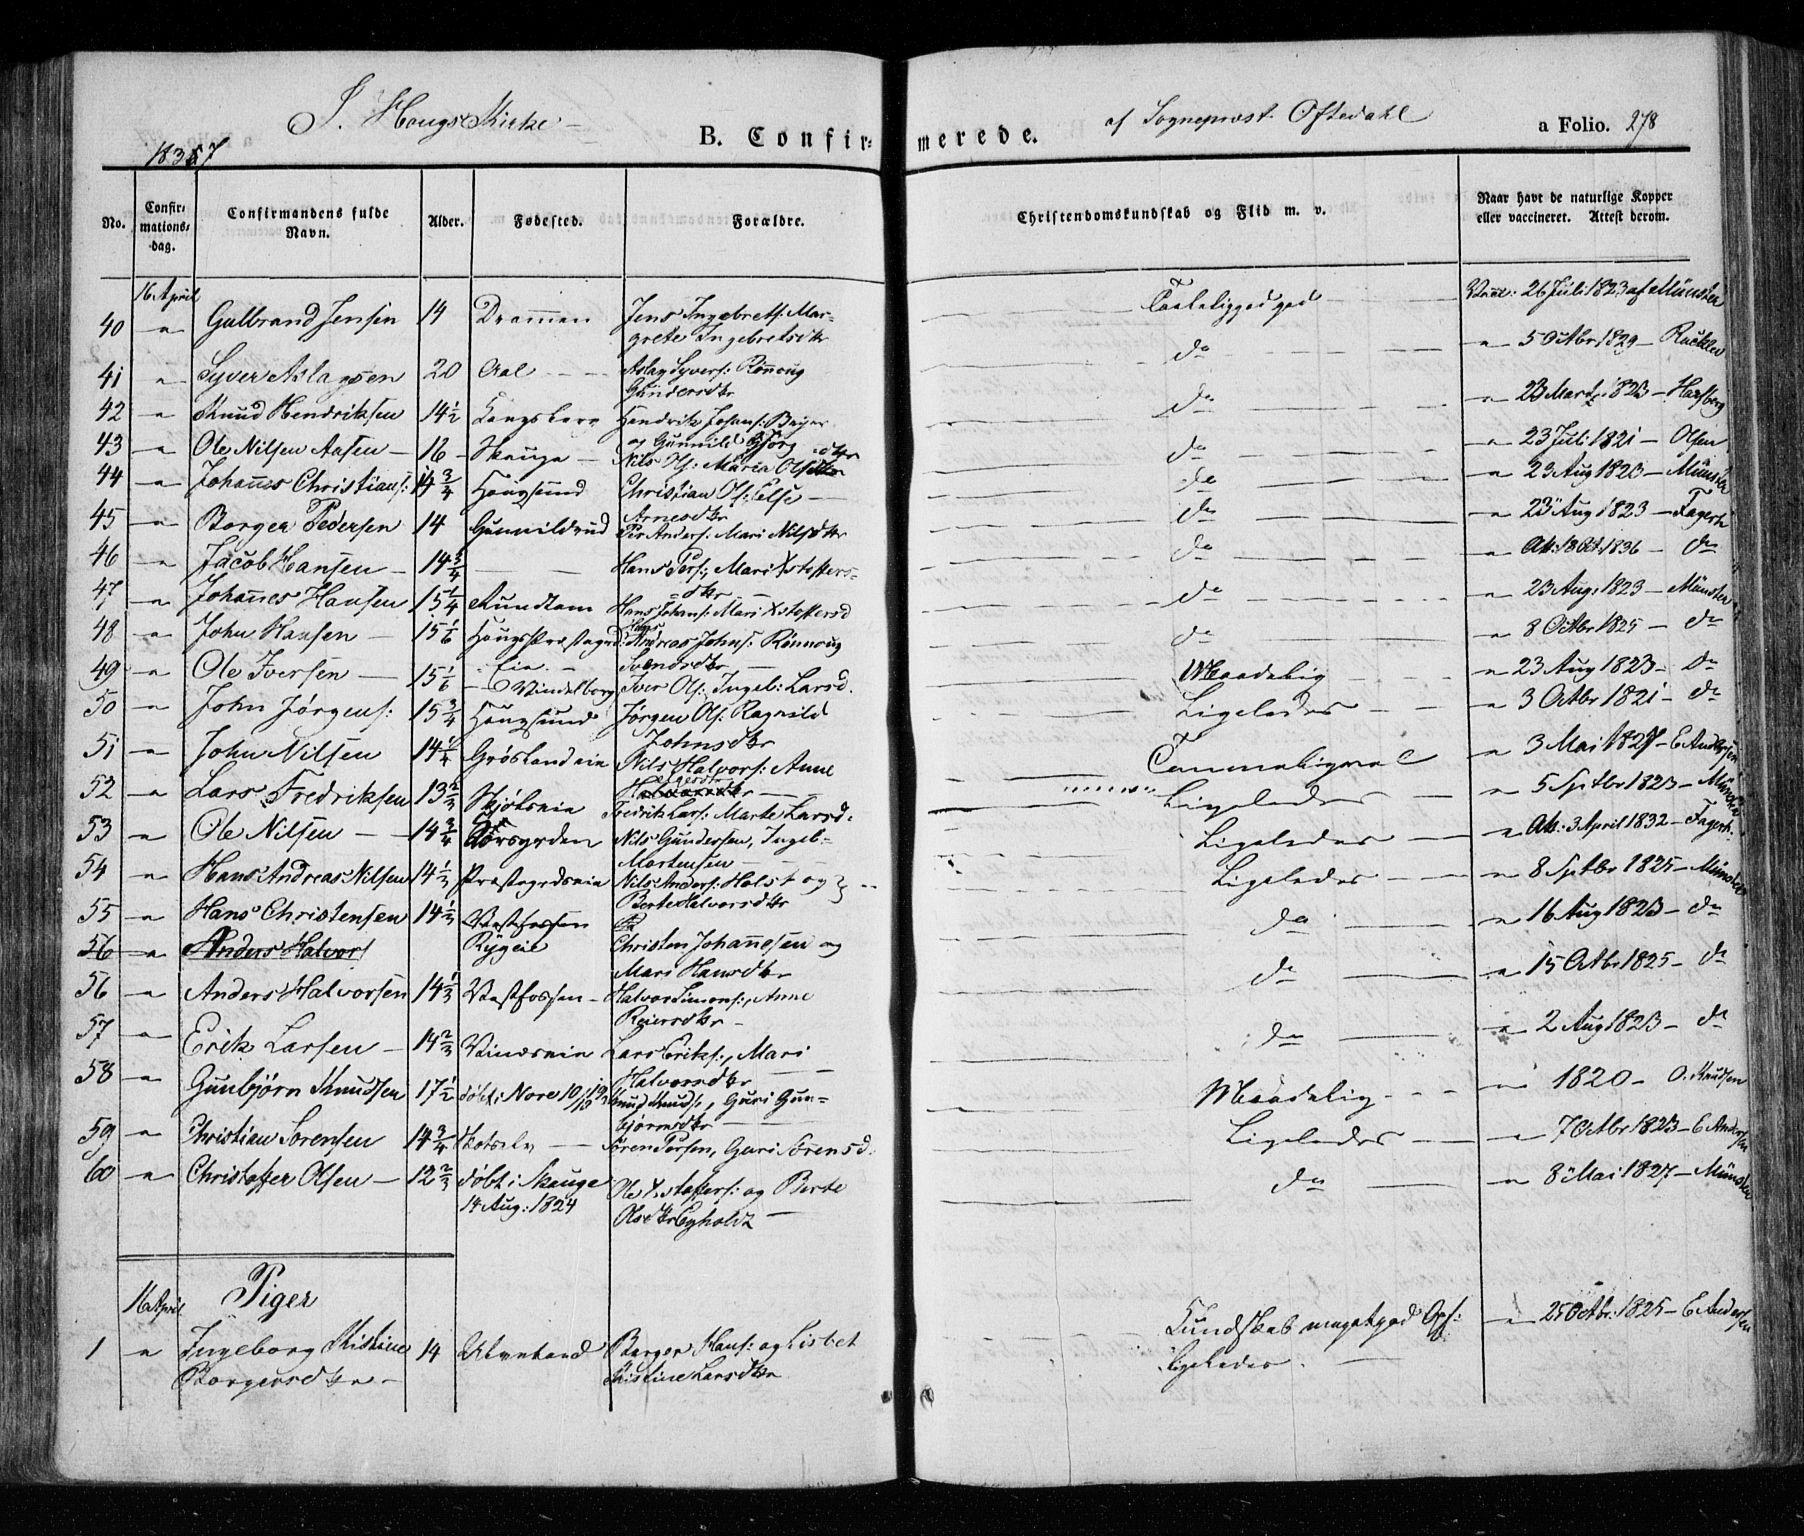 I. Hougs Kirke –
af Sogneprost Oftedahl
a Folio. 278
1837
B. Confirmerede.
No.
Confirmationsdag.
Confirmandens fulde Navn.
Alder.
Fødested.
Forældre.
Christendomskundskab og Flid m. v.
Naar havt de naturlige Kopper eller vaccineret. Attest derom.
16 April
40 Gulbrand Jensen 14 Drammen Jens Ingebrets: Margrete Ingebretsdtr Taaleliggod god Vacc: 26 Juli 1823 af Münster
41 Syver Aslagsen 20 Aal Aslag Syvers: Rønnoug Gundersdtr do 5 Octbr 1829 –
42 Knud Hendriksen 14 1/2 Kongsberg Hendrik Johans: Beijer og Gunnild do – Harsberg
43 Ole Nilsen Aasen – 16 – Skauge – Nils Ols: Maria Olsdtr do 23 Juli 1821 – Olsen
44 Johannes Christians: 14 3/4 Hougsund Christian Ols: Else Arnesdtr do 23 Aug 1823 – Münster
45 Borger Pedersen 14 Gunnildrud Per Anders: Mari Nilsdtr do 23 Aug 1823 – Fagerh
46 Jacob Hansen – 14 3/4 – Hans Pers:, Mari Xstoffersdtr do 1836 – do
47 Johannes Hansen 15 1/4 Hans Johans: Mari Xstoffersd do 23 Aug: 1823 – Münster
48 John Hansen – 15 1/6 Hans Andreas Johns: Rønnoug Svendsdtr do 8 Octbr 1825 – do
49 Ole Iversen – 15 1/6 Vindelborg Iver Ols: Ingeb: Larsd. Maadelig 23 Aug 1823 – do
50 John Jørgens: 15 3/4 Hougsund Jørgen Ols: Ragnild Johnsdtr Ligeledes 3 Octbr 1821 – do
51 John Nilsen 14 1/4 Nils Halvors: Anne Temmeligvel 3 Mai 1827 – E Andersen
52 Lars Fredriksen 13 2/3 Fredrik Lars: Marte Larsd: Ligeledes 5 Sptbr 1823 – Münster
53 Ole Nilsen – 14 3/4 Nils Gundersen, Ingeb: Mortensen Ligeledes At: 3 April 1832 – Fagerh.
54 Hans Andreas Nilsen 14 1/3 Præstegrdseie Nils Anders: Holst og Berte Halvorsdtr Ligeledes 8 Sptbr 1825 – Münster
55 Hans Christensen 14 1/3 Vestfossen Rygeie Christen Johannesen og Mari Hansdtr do 16 Aug 1823 – do
56 Anders Halvor
56 Anders Halvorsen 14 1/3 Vestfossen – Halvor Simons:, Anne Reiersdtr – do 15 Octbr 1825 – do
57 Erik Larsen – 14 2/3 Lars Eriks:, Mari Halvorsdtr do 2 Aug 1823 – do
58 Gunbjørn Knudsen 17 1/2 døbt i Nore Knud Knuds:, Guri Gunbjørnsdtr Maadelig 1820 – O. Knudsen
59 Christian Sørensen 14 3/4 Hotselv – Søren Persen, Guri Sørensd. Ligeledes 7 Octbr 1823 – E Andersen
60 Christoffer Olsen – 12 2/3 døbt i Skauge 14 Aug: 1824 Ole Xstoffers: og Berte Olsdtr Egholdt do 8 Mai 1827 – Münster
16 April
Piger
1 Ingeborg Kristine Borgersdtr – 14 Borger Hans: og Lisbet Kristine Larsdtr Kundskab megetgod Opf: ligeledes. 25 Octbr: 1825 – E Andersen